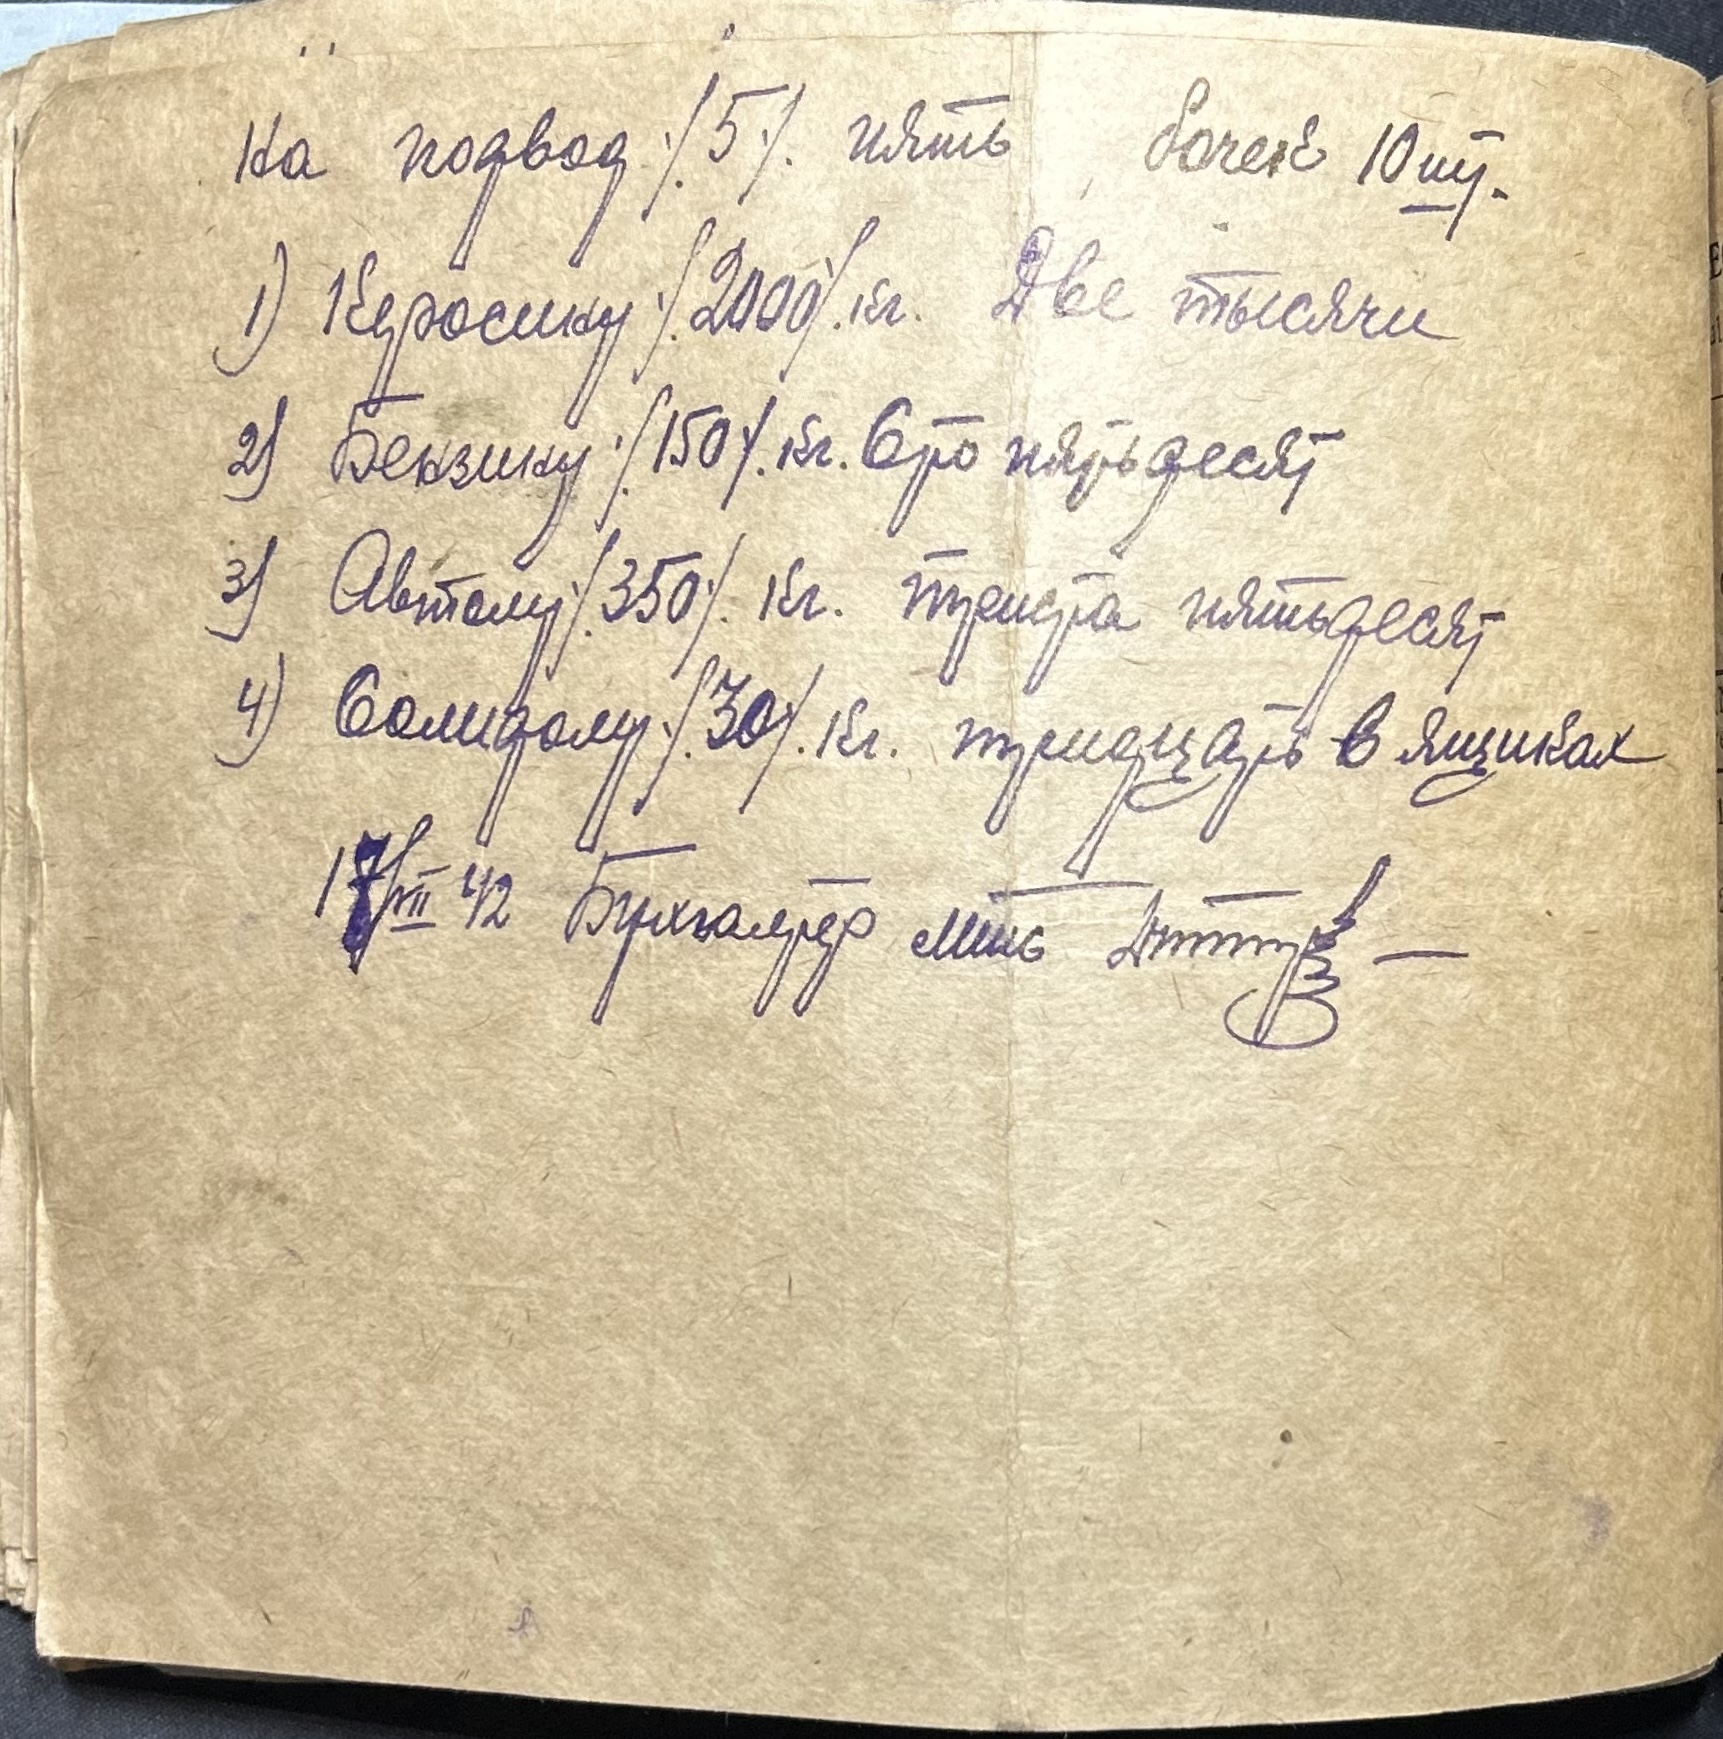 На подвод ./.5./. пять бочек 10 шт.
1) Керосину ./.2000./. кг. Две тысячи
2) Бензину ./.150./. кг. Сто пятьдесят
3) Автолу ./.350./. кг. триста пятьдесят
4) Солидолу ./.30./. кг. тридцать в ящиках
17/VII 42 Бухгалтер